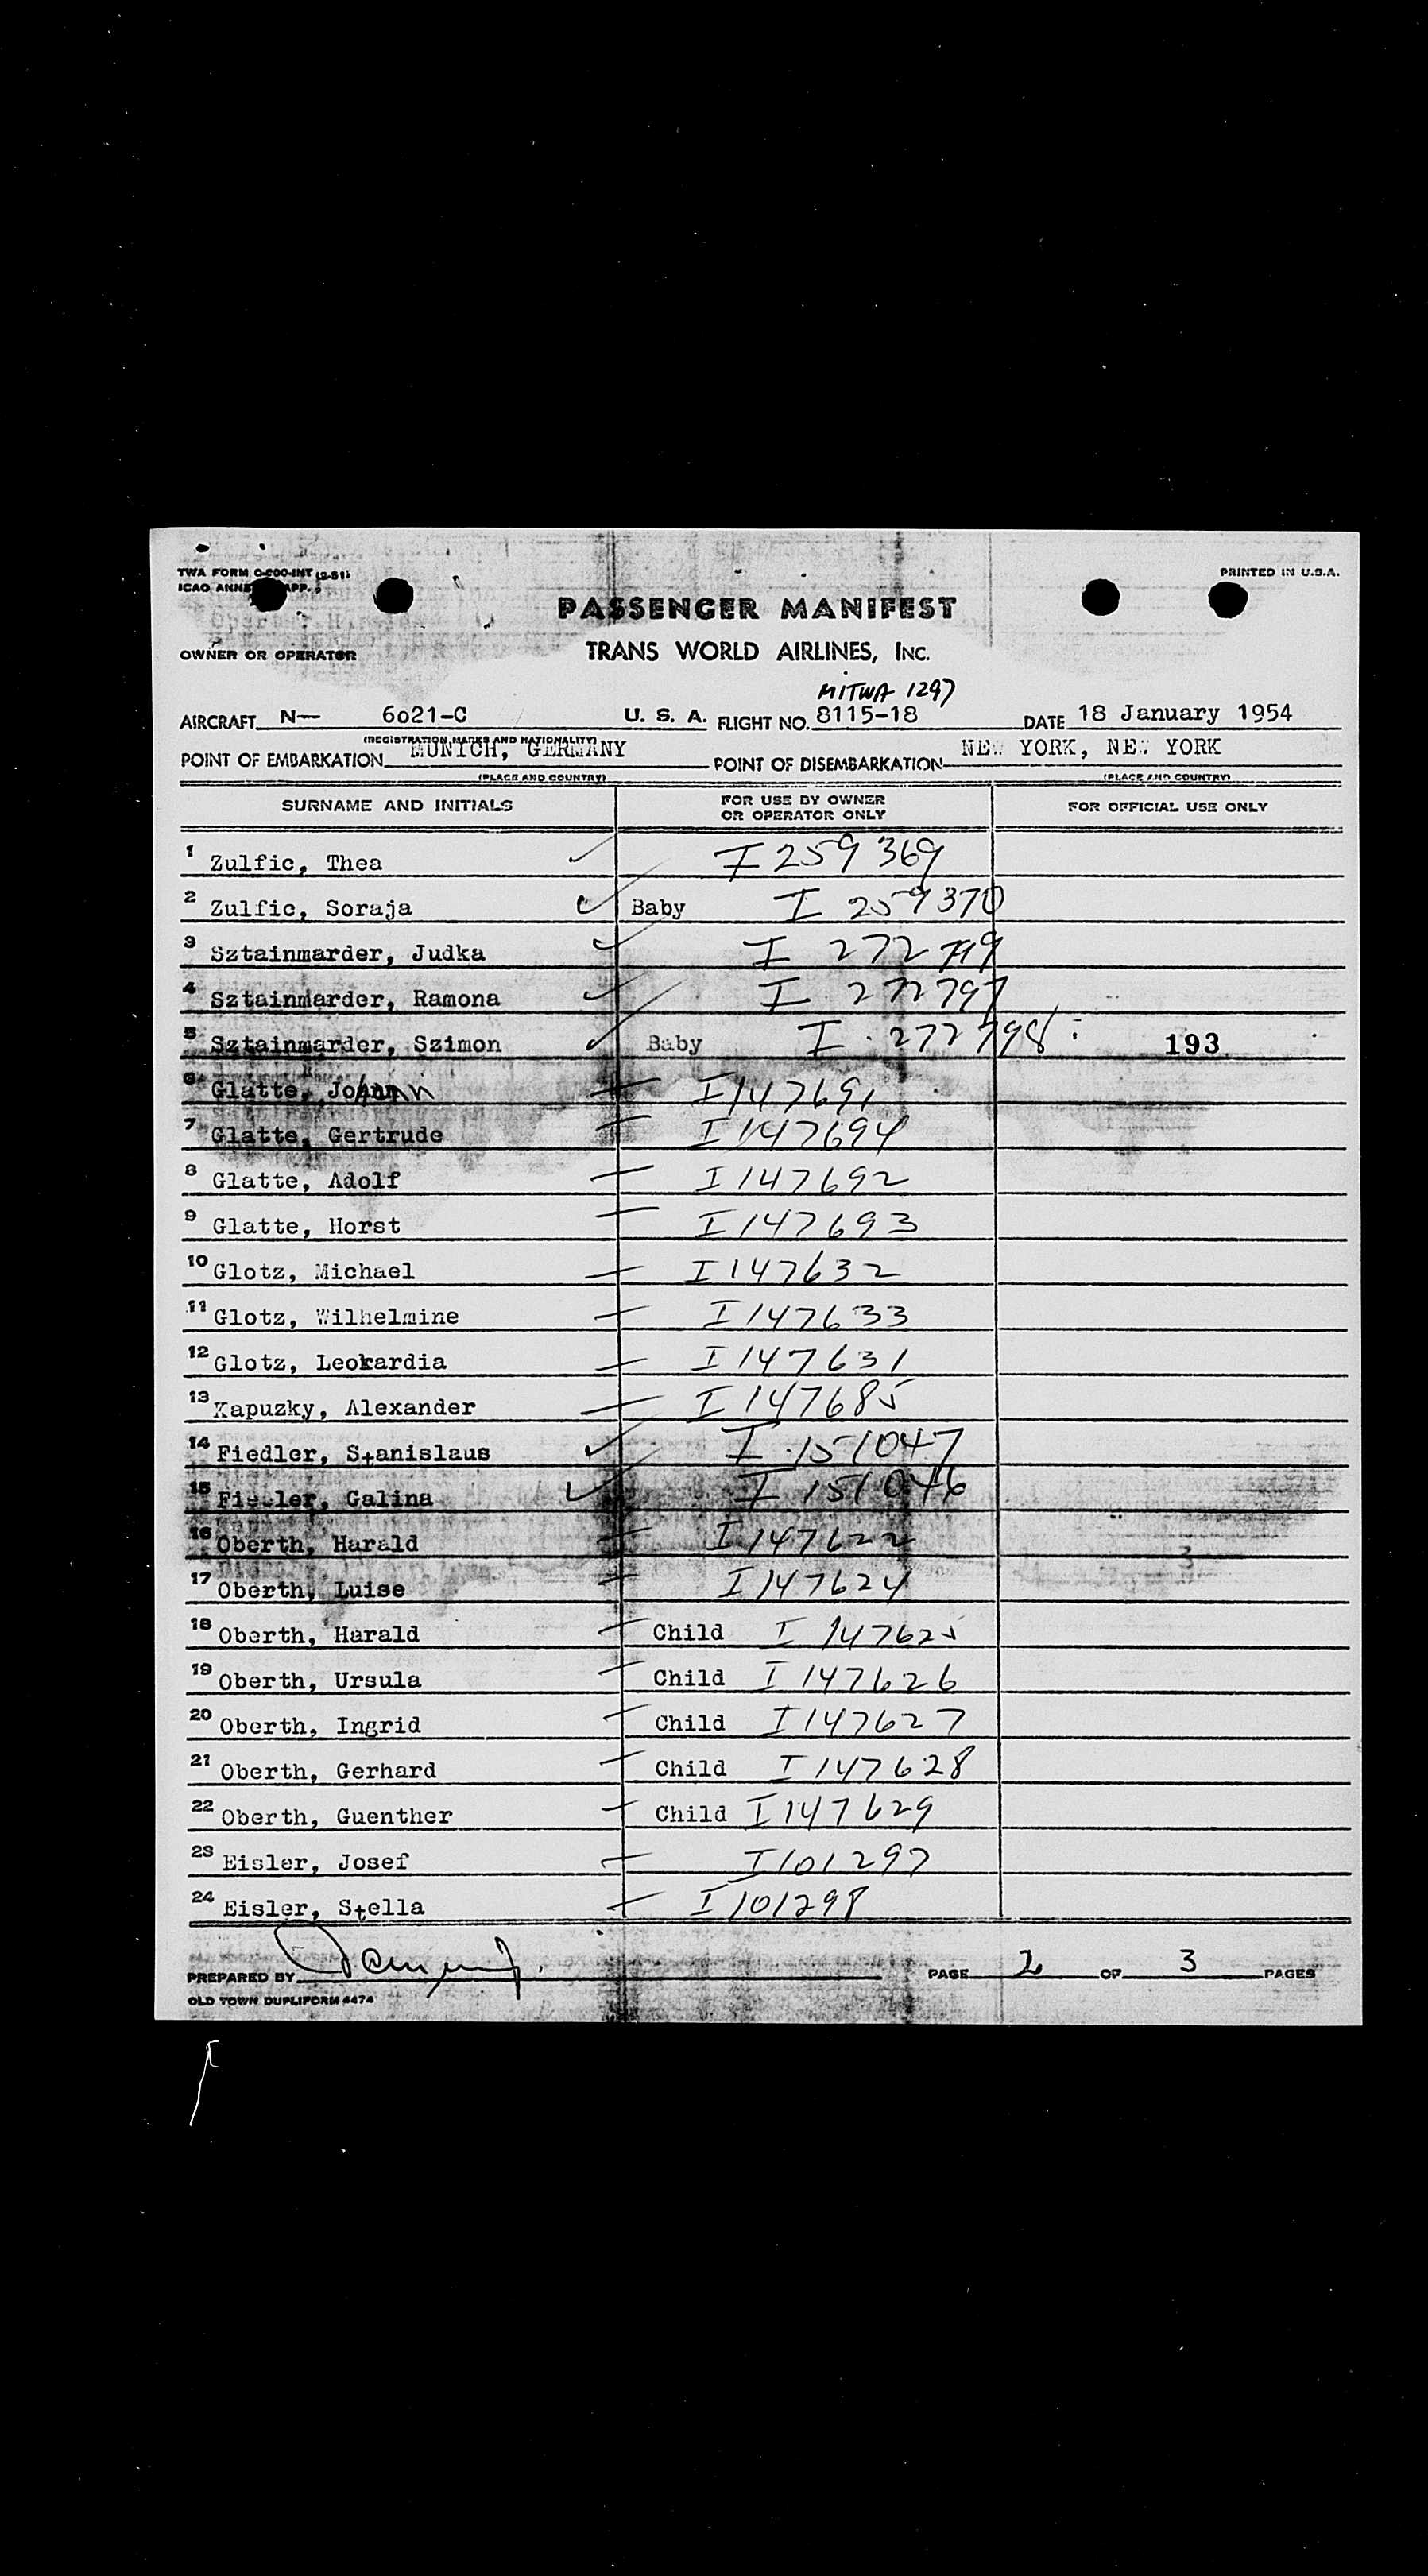 TWA FORM O-200-INT (2-51)
PRINTED IN U.S.A.
ICAO ANNE APP.
PASSENGER MANIFEST
OWNER OR OPERATOR
TRANS WORLD AIRLINES, INC.
MITWA 1297
AIRCRAFT N— 6021-C U. S. A. FLIGHT NO. 8115-18 DATE 18 January 1954
(REGISTRATION MARKS AND NATIONALITY)
POINT OF EMBARKATION MUNICH, GERMANY POINT OF DISEMBARKATION NEW YORK, NEW YORK
(PLACE AND COUNTRY) (PLACE AND COUNTRY)
SURNAME AND INITIALS FOR USE BY OWNER OR OPERATOR ONLY FOR OFFICIAL USE ONLY
1 Zulfic, Thea I 259369
2 Zulfic, Soraja Baby I 259370
3 Sztainmarder, Judka I 272799
4 Sztainmarder, Ramona I 272797
5 Sztainmarder, Szimon Baby I 272798 193
6 Glatte, Johann I147691
7 Glatte, Gertrude I147694
8 Glatte, Adolf I147692
9 Glatte, Horst I147693
10 Glotz, Michael I147632
11 Glotz, Wilhelmine I147633
12 Glotz, Leokardia I147631
13 Kapuzky, Alexander I147685
14 Fiedler, Stanislaus I 151047
15 Fiedler, Galina I 151046
16 Oberth, Harald I147622
17 Oberth, Luise I147624
18 Oberth, Harald Child I 147625
19 Oberth, Ursula Child I 147626
20 Oberth, Ingrid Child I147627
21 Oberth, Gerhard Child I147628
22 Oberth, Guenther Child I147629
23 Eisler, Josef I101297
24 Eisler, Stella I101298
PREPARED BY PAGE 2 OF 3 PAGES
OLD TOWN DUPLIFORM 4474